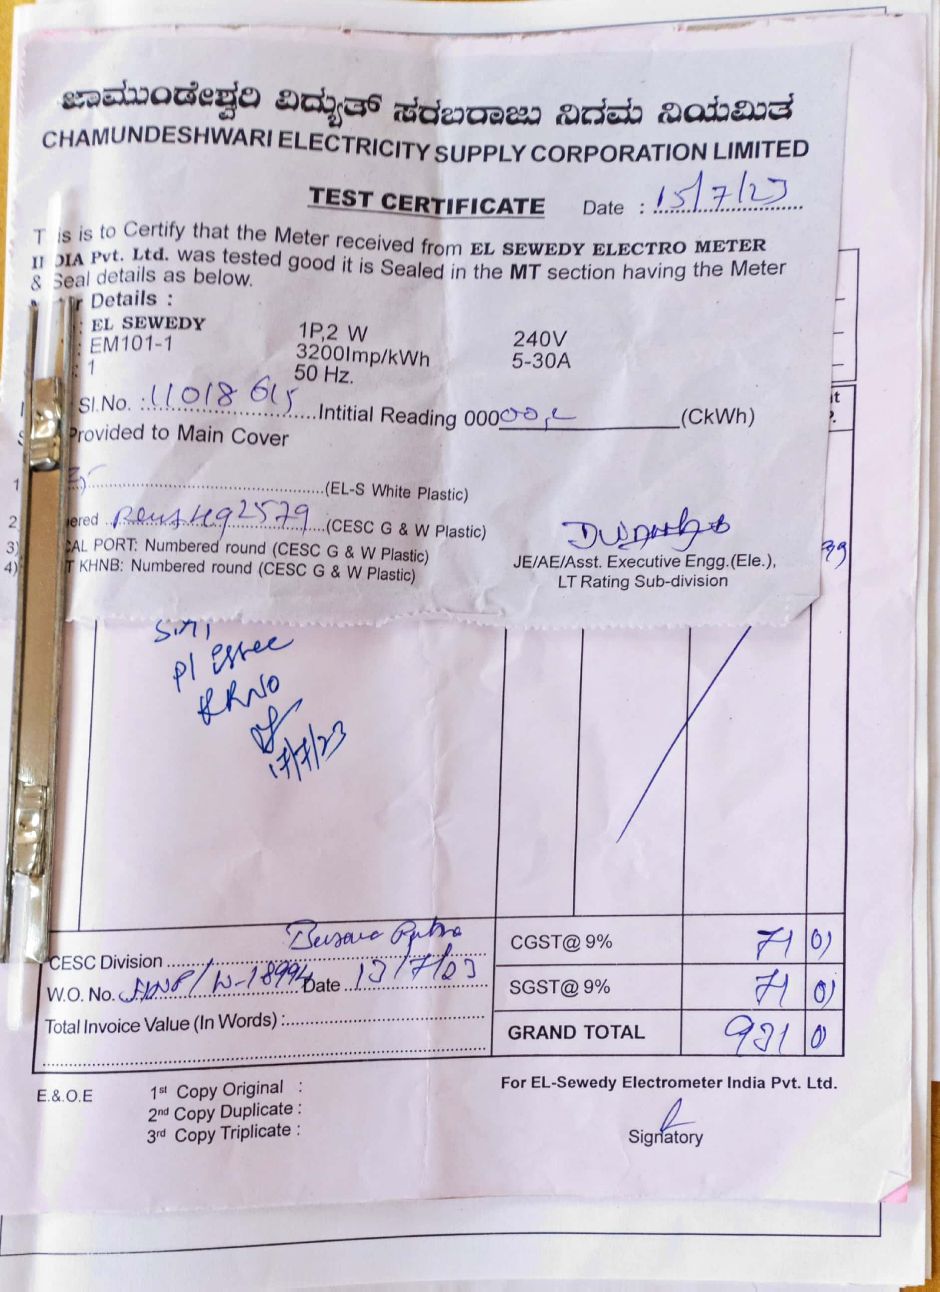 ಚಾಮುಂಡೇಶ್ವರಿ ವಿದ್ಯುತ್ ಸರಬರಾಜು ನಿಗಮ ನಿಯಮಿತ
CHAMUNDESHWARI ELECTRICITY SUPPLY CORPORATION LIMITED
TEST CERTIFICATE Date : 15/7/23
is is to Certify that the Meter received from EL SEWEDY ELECTRO METER
DIA Pvt. Ltd. was tested good it is Sealed in the MT section having the Meter
& Seal details as below.
Details :
: EL SEWEDY 1P,2 W 240V
: EM101-1 3200Imp/kWh 5-30A
: 1 50 Hz.
Sl.No. : 11018615 Intitial Reading 000 (CkWh)
Provided to Main Cover
1 (EL-S White Plastic)
2 ered (CESC G & W Plastic)
3) CAL PORT: Numbered round (CESC G & W Plastic)
4) T KHNB: Numbered round (CESC G & W Plastic)
JE/AE/Asst. Executive Engg.(Ele.),
LT Rating Sub-division
17/7/23
CESC Division
W.O. No. Date 13/7/23
Total Invoice Value (In Words) :
CGST@ 9% 71 01
SGST@ 9% 71 01
GRAND TOTAL 931 0
E.&.O.E
1st Copy Original :
2nd Copy Duplicate :
3rd Copy Triplicate :
For EL-Sewedy Electrometer India Pvt. Ltd.
Signatory